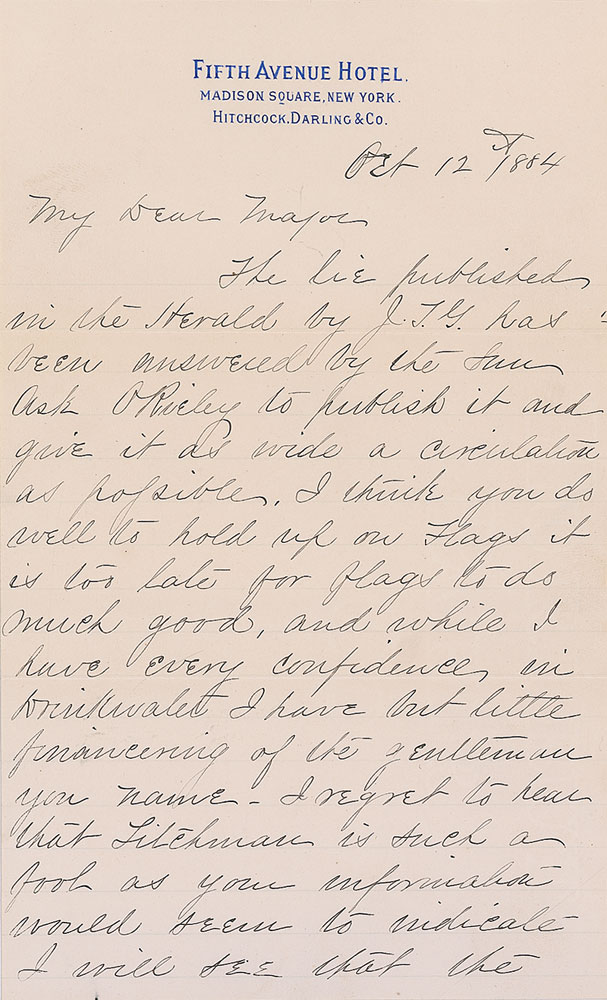 FIFTH AVENUE HOTEL.
MADISON SQUARE, NEW YORK.
HITCHCOCK, DARLING & CO.
Oct 12th 1884
My Dear Major
The lie published
in the Herald by J.T.G. has
been answered by the Sun
Ask ORieley to publish it and
give it as wide a circulation
as possible. I think you do
well to hold up on Flags it
is too late for flags to do
much good, and while I
have every confidence in
Drinkwater I have but little
financeering of the gentleman
you name - I regret to hear
that Litchman is such a
fool as your information
would seem to indicate
I will see that the